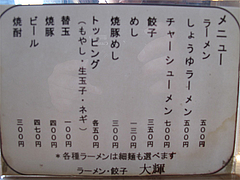 メニュー
ラーメン 五〇〇円
しょうゆラーメン 五〇〇円
チャーシューメン 七〇〇円
餃子 三五〇円
めし 一五〇円
焼豚めし 三〇〇円
トッピング 各五〇円
(もやし・生玉子・ネギ)
替玉 一〇〇円
焼豚 四〇〇円
ビール 四七〇円
焼酎 三〇〇円
*各種ラーメンは細麺も選べます
ラーメン・餃子 大輝